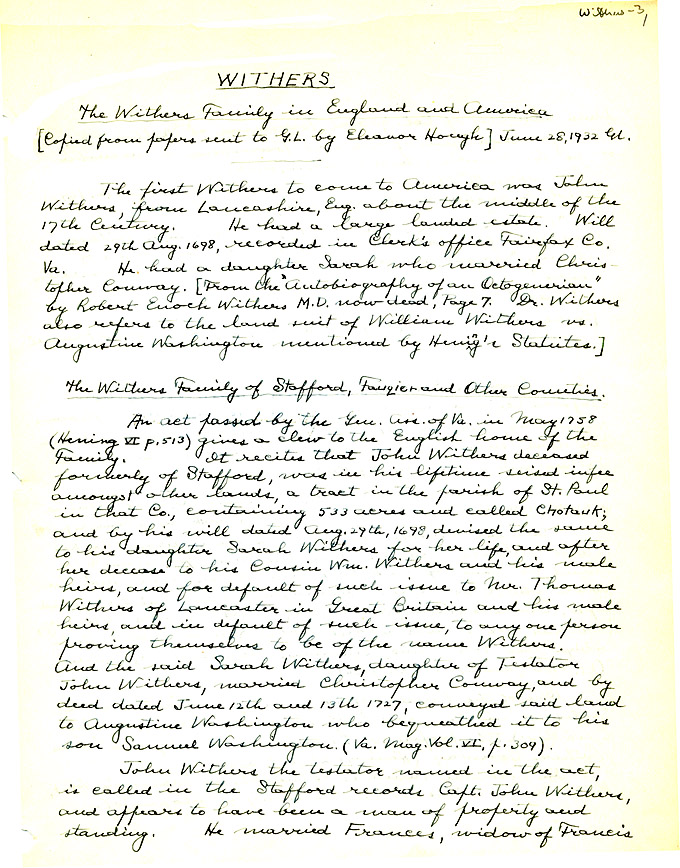 Withers-3/1
WITHERS
The Withers Family in England and America
[Copied from papers sent to G.L. by Eleanor Hough] June 28, 1932 GL.
The first Withers to come to America was John
Withers, from Lancashire, Eng. about the middle of the
17th Century. He had a large landed estate. Will
dated 29th Aug. 1698, recorded in Clerk's office Fairfax Co.
Va. He had a daughter Sarah who married Chris-
topher Conway. [From the "Autobiography of an Octogenerian"
by Robert Enoch Withers M.D. now dead, Page 7. Dr. Withers
also refers to the land suit of William Withers vs.
Augustine Washington mentioned by Hening's Statutes.]
The Withers Family of Stafford, Fauqier and Other Counties.
An act passed by the Gen. Ass. of Va. in May 1758
(Hening VI p, 513) gives a clew to the English home of the
Family. It recites that John Withers deceased
formerly of Stafford, was in his lifetime seised infee
amongst other lands, a tract in the parish of St. Paul
in that Co., containing 533 acres and called Chotank;
and by his will dated Aug. 29th, 1698, devised the same
to his daughter Sarah Withers for her life, and after
her decease to his Cousin Wm. Withers and his male
heirs, and for default of such issue to Mr. Thomas
Withers of Lancaster in Great Britain and his male
heirs, and in default of such issue, to any one person
proving themselves to be of the name Withers.
And the said Sarah Withers, daughter of Testator
John Withers, married Christopher Conway, and by
deed dated June 12th and 13th 1727, conveyed said land
to Augustine Washington who bequeathed it to his
son Samuel Washington. (Va. Mag. Vol. VI, p. 309).
John Withers the testator named in the act,
is called in the Stafford records Capt. John Withers,
and appears to have been a man of property and
standing. He married Frances, widow of Francis